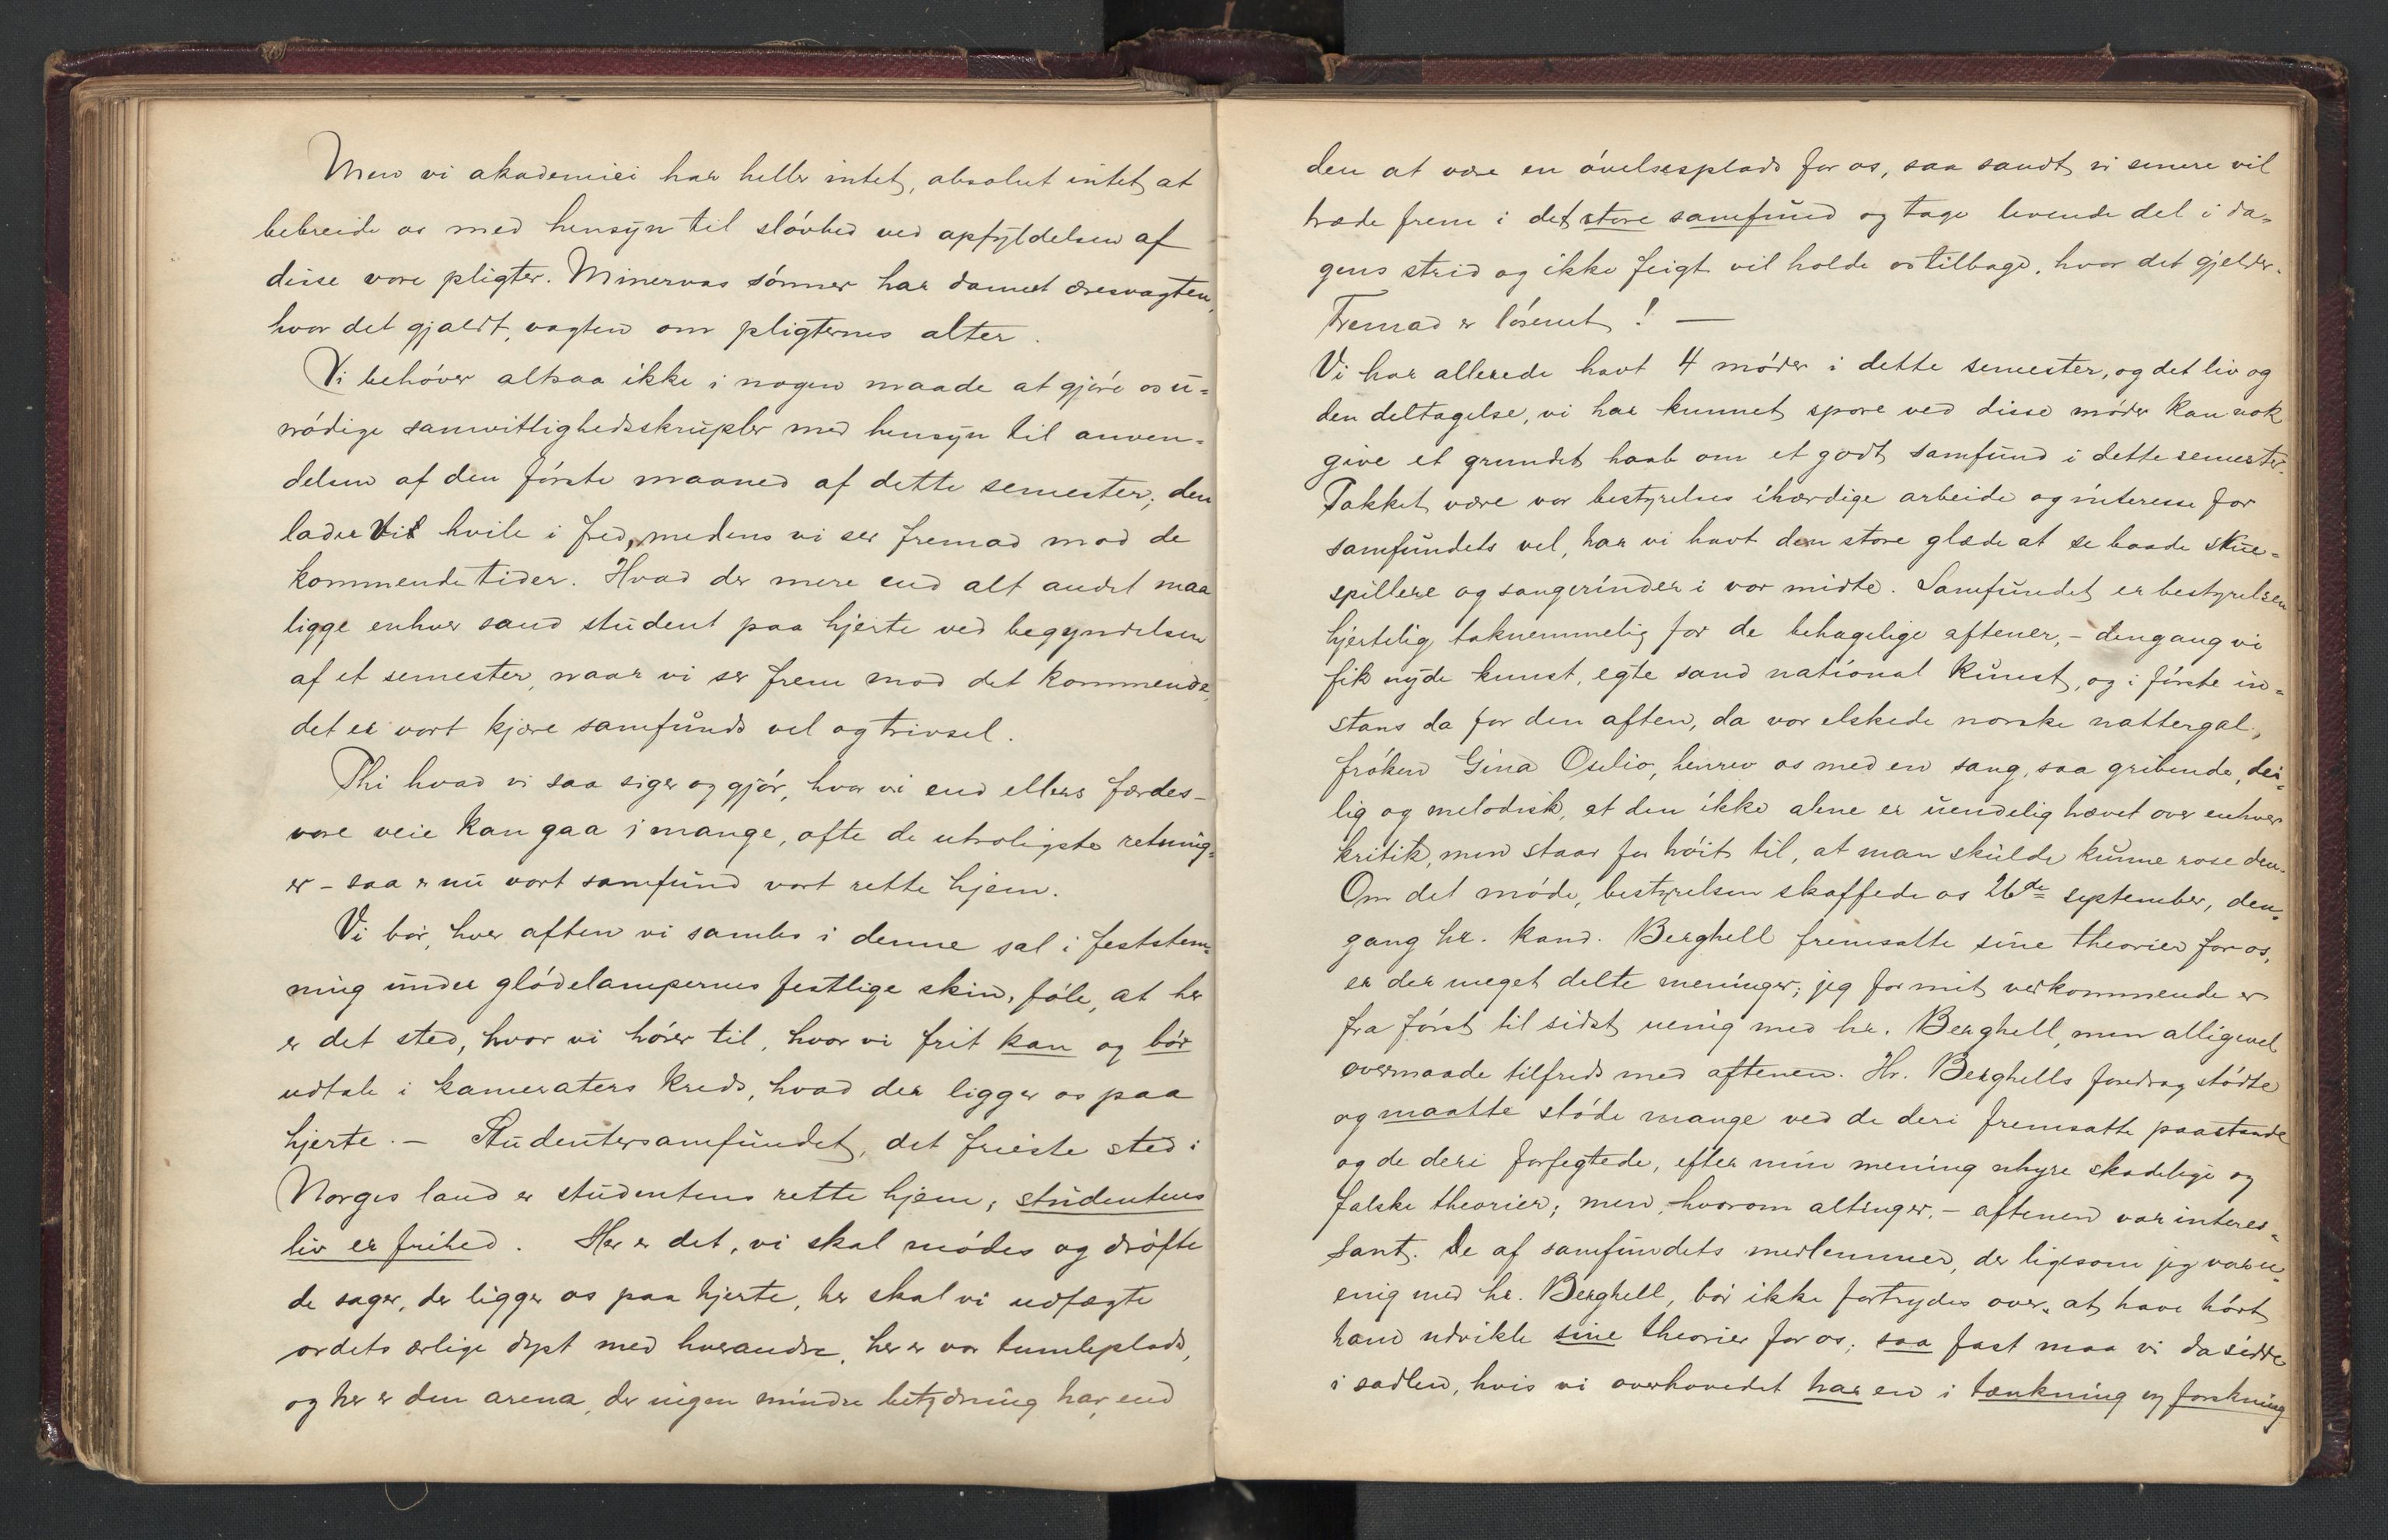 Men vi akademici har heller intet, absolut intet at
bebreide os med hensyn til sløvhed ved opfyldelsen af
disse vore pligter. Minervas sønner har dannet æresvagten,
hvor det gjældt, vagten om pligternes alter.
Vi behøver altsaa ikke i nogen maade at gjøre os u-
nødige samvittighedsskrupler med hensyn til anven-
delsen af den første maaned af dette semester; den
lader vi hvile i fred, medens vi ser fremad mod de
kommende tider. Hvad der mere end alt andet maa
ligge enhver sand student paa hjerte ved begyndelsen
af et semester, naar vi ser frem mod det kommende,
det er vort kjære samfunds vel og trivsel.
Thi hvad vi saa siger og gjør, hvor vi end ellers færdes -
vore veie kan gaa i mange, ofte de utroligste retning-
er - saa er nu vort samfund vort rette hjem.
Vi bør, hver aften vi samles i denne sal i feststem-
ning under glødelampernes festlige skin, føle, at her
er det sted, hvor vi hører til, hvor vi frit kan og bør
udtale i kameraters kreds, hvad der ligger os paa
hjerte. - Studentersamfundet, det frieste sted i
Norges land er studentens rette hjem; studentens
liv er frihed. Her er det, vi skal mødes og drøfte
de sager, der ligger os paa hjerte, her skal vi udfægte
ordets ærlige dyst med hverandre, her er vor tumleplads,
og her er den arena, der ingen mindre betydning har, end
den at være en øvelsesplads for os, saa sandt vi senere vil
træde frem i det store samfund og tage levende del i da-
gens strid og ikke feigt vil holde os tilbage, hvor det gjelder.
Fremad er løsenet! -
Vi har allerede havt 4 møder i dette semester, og det liv og
den deltagelse, vi har kunnet spore ved disse møder kan nok
give et grundet haab om et godt samfund i dette semester.
Takket være vor bestyrelses ihærdige arbeide og interesse for
samfundets vel, har vi havt den store glæde at se baade skue-
spillere og sangerinder i vor midte. Samfundet er bestyrelsen
hjertelig taknemmelig for de behagelige aftener, - dengang vi
fik nyde kunst, egte sand national kunst, og i første in-
stans da for den aften, da vor elskede norske nattergal,
frøken Gina Oselio, henrev os med en sang, saa gribende, dei-
lig og melodisk, at den ikke alene er uendelig hævet over enhver
kritik, men staar for høit til, at man skulde kunne rose den.
Om det møde, bestyrelsen skaffede os 26de september, den-
gang hr. kand. Berghell fremsatte sine theorier for os,
er der meget delte meninger; jeg for mit vedkommende er
fra først til sidst uenig med hr. Berghell, men alligevel
overmaade tilfreds med aftenen. Hr. Berghells foredrag stødte
og maatte støde mange ved de deri fremsatte paastande
og de deri forfegtede, efter min mening uhyre skadelige og
falske theorier; men, hvorom alting er, - aftenen var interes-
sant. De af samfundets medlemmer, der ligesom jeg var u-
enig med hr. Berghell, bør ikke fortrydes over, at have hørt
ham udvikle sine theorier for os; saa fast maa vi da sidde
i sadlen, hvis vi overhovedet har en i tænkning og forskning